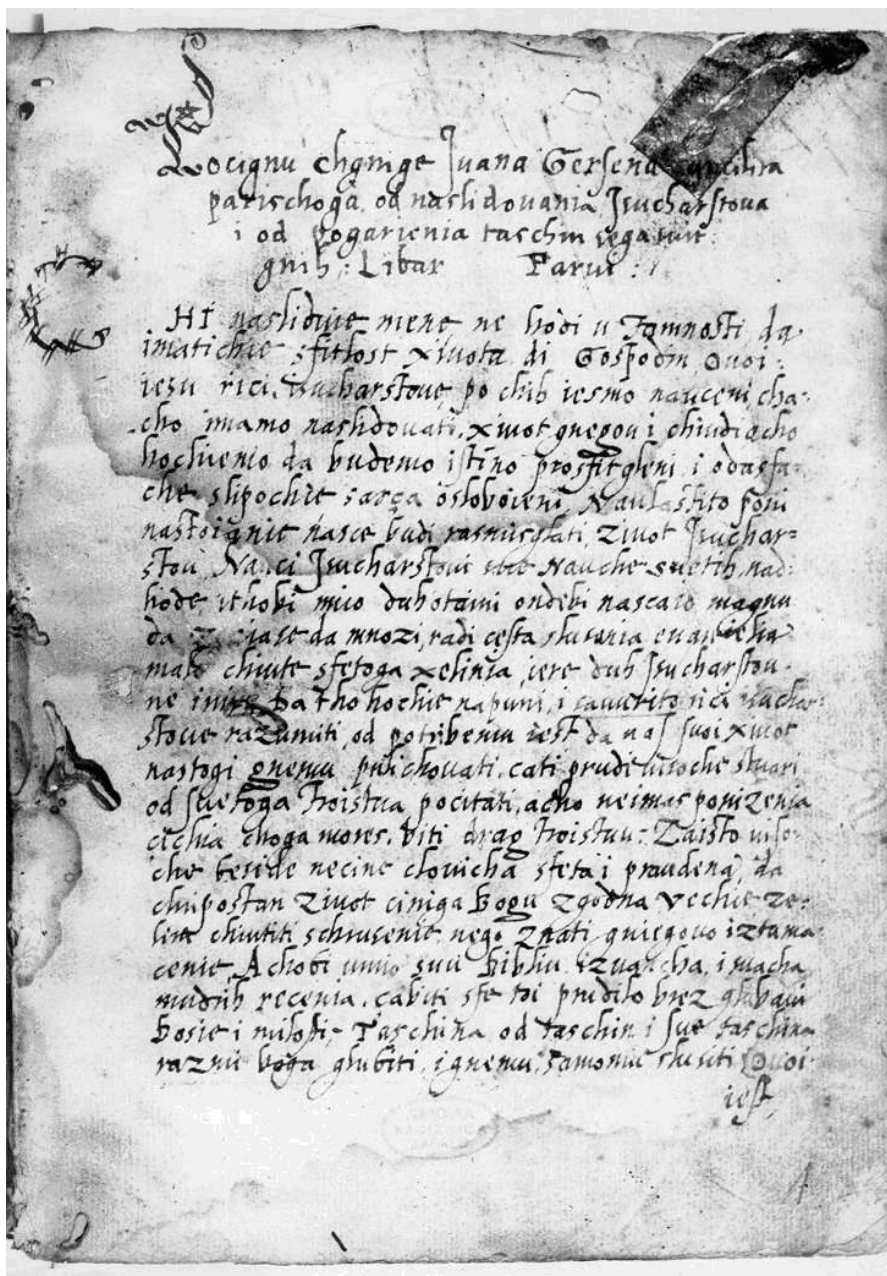 Pocignu chgnige Juana Gersena
parischoga od naslidouania Jsucharstoua
i od pogarienia taschin segasuit
gnih : Libar Parui :
HI nasliduie mene ne hodi u Tamnosti, da
imatichie sfitlost xiuota di Gospodin, Ouoi
iesu rici Isucharstoue, po chih iesmo nauceni cha-
cho imamo naslidouati, xiuot gnegou i chiudi acho
hochiemo da budemo istino prosfitgleni i odasfa-
che slipochie sarça osloboieni, Naulastito poni
nastoiagnie nasce budi rasmisglati, Ziuot Jsuchar-
stou, Nauci Jsucharstoui sue Nauche suetih, nad-
hode, i thobi imio duh otaini ondebi nascao magnu
da mnozi, radi cesta slusania euangielia
malo chiute sfetoga xelinia, iere duh Jsucharstou-
ne imiu, Da tho hochie napuni, i rici Isuchar-
stoue razumiti, od potribe mu iest da uas suoi xiuot
nastogi gnemu prilichouati, cati prudi uisoche stuari
od suetoga Troistua pocitati, acho neimas ponizenia
cechia choga mores, biti drag Troistuu: Zaisto uiso-
che beside necine clouicha sfeta i praudena, da
chripostan Ziuot ciniga Bogu zgodna vechie ze-
lim chiutiti schrusenie nego znati gniegouo iztama-
cenie, Achobi umio suu Bibliu izuancha, i
mudrih recenia, cabiti sfe toi prudilo brez glubaui
bosie i milosti, Taschina od taschin i sue taschina
razmi boga glubiti, i gnemu samomu slusiti Ouoi
iest